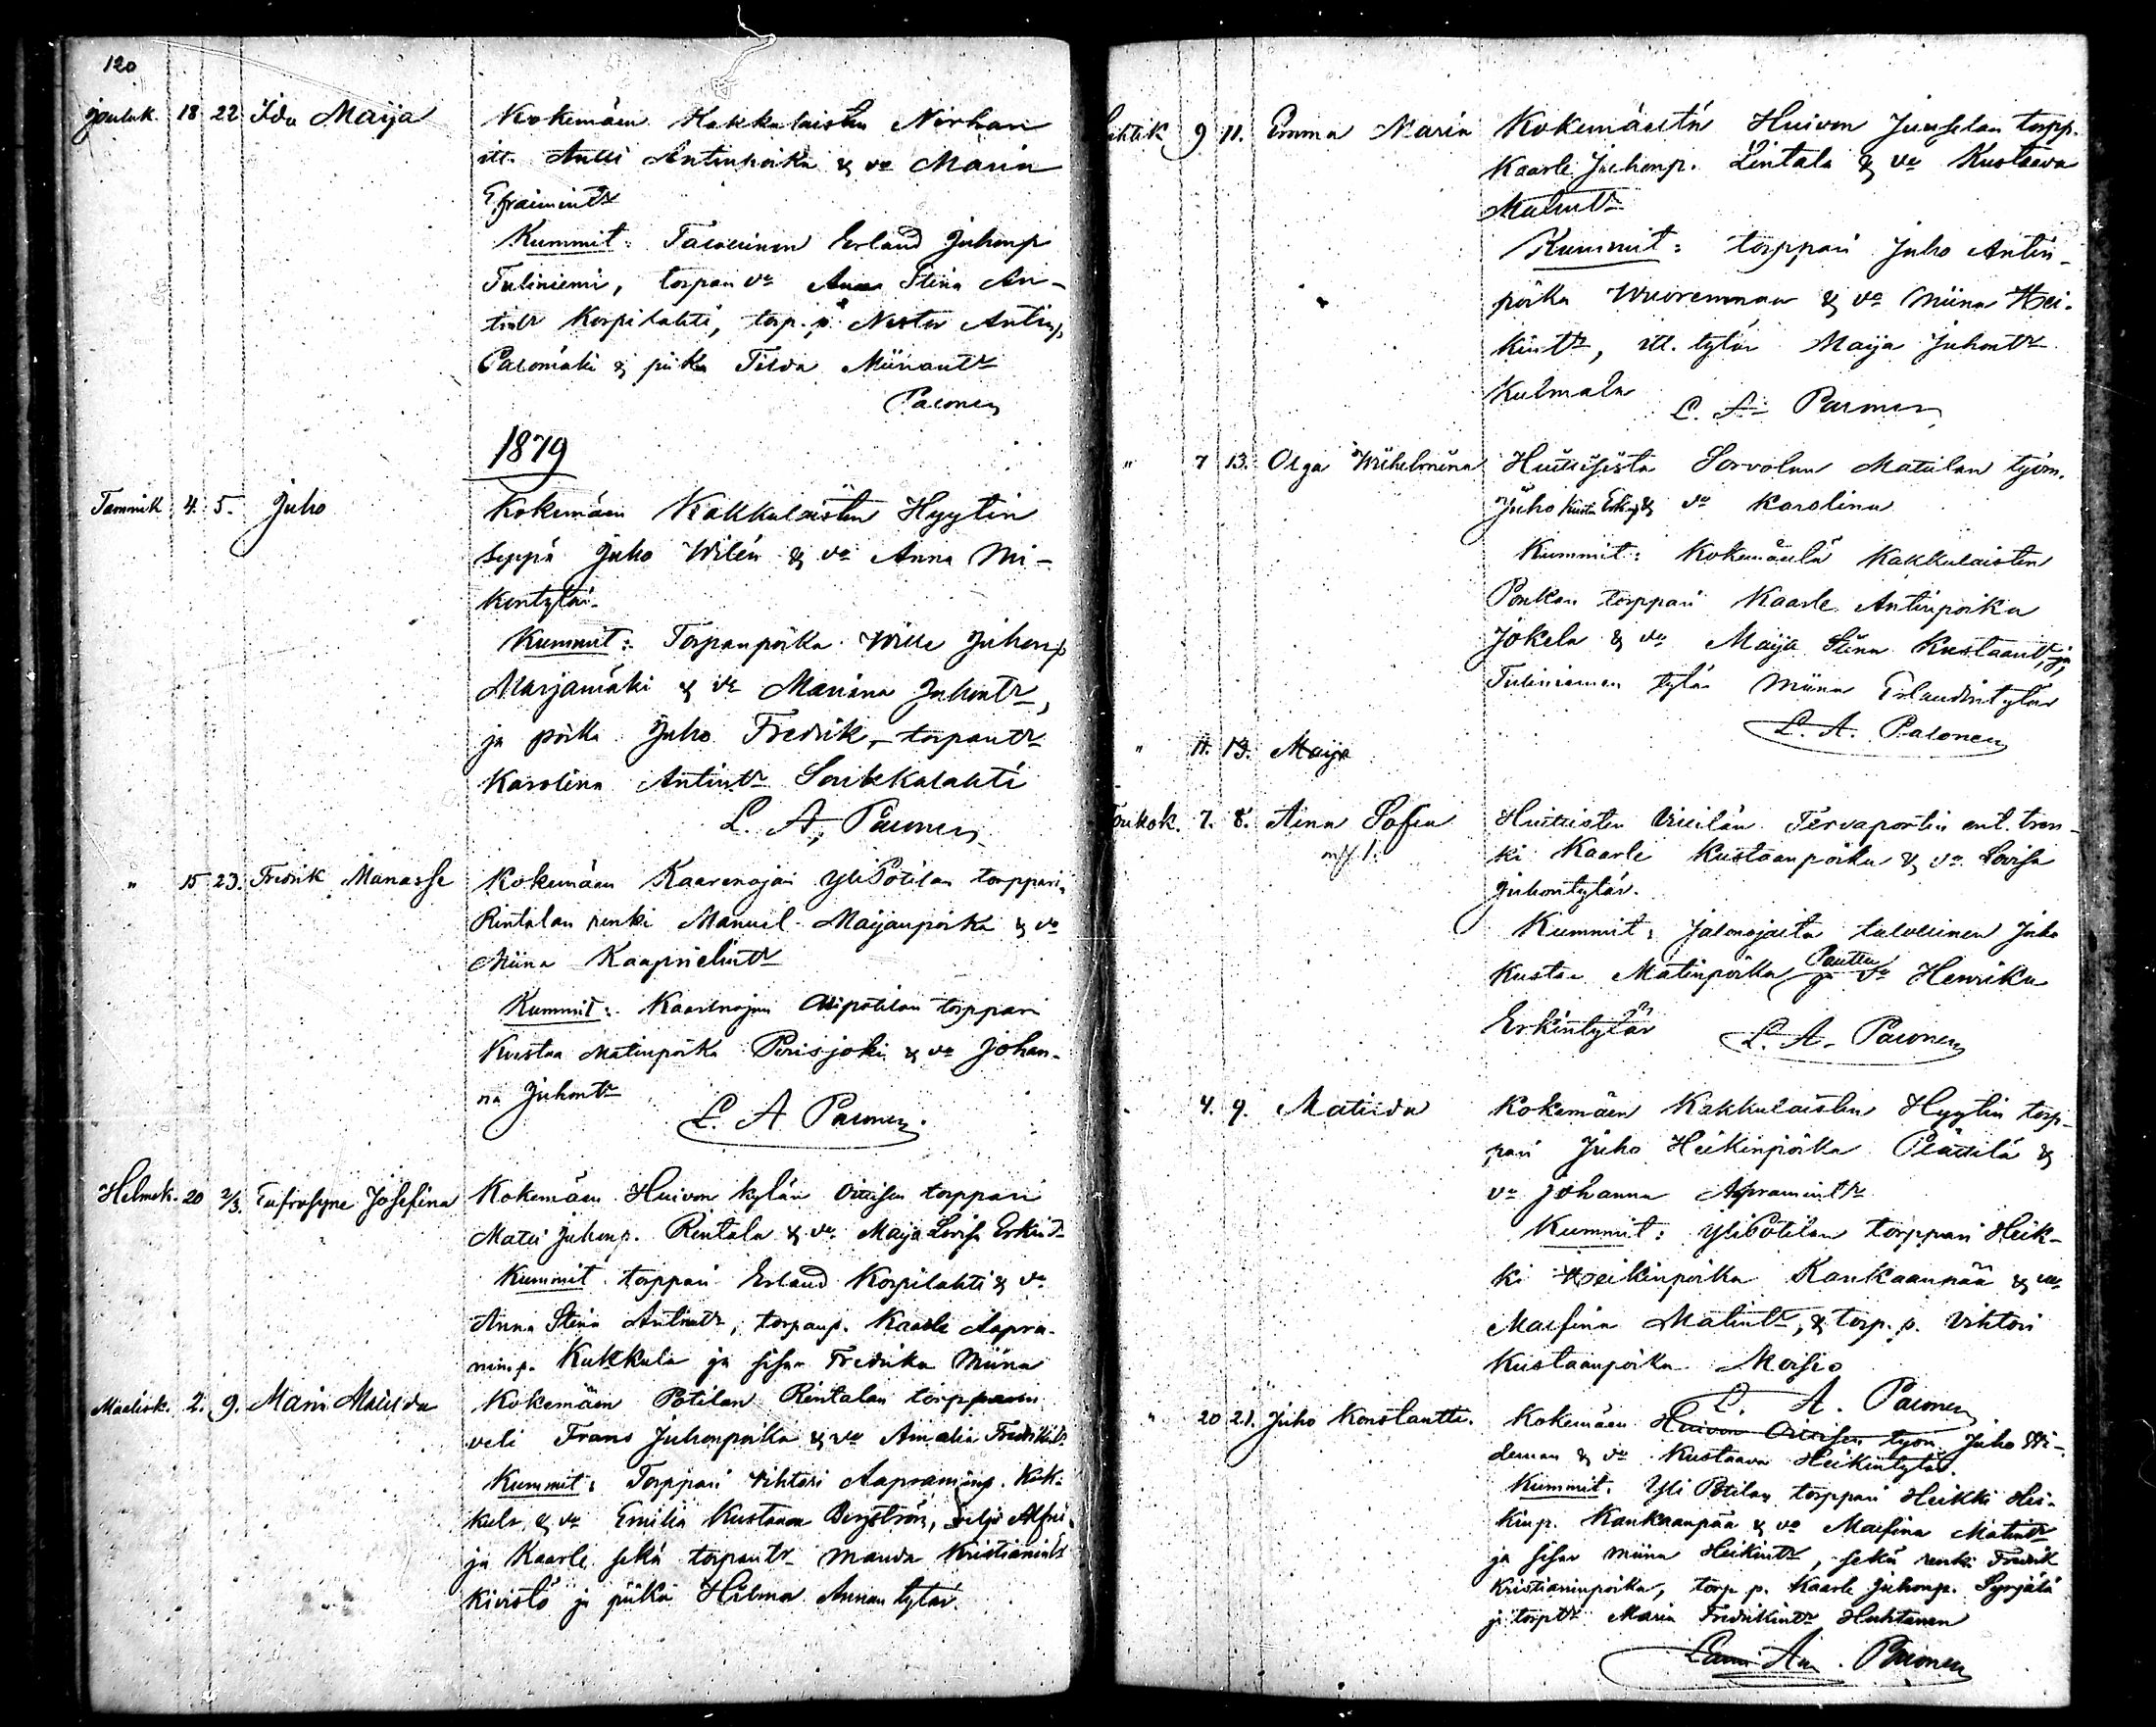 120
Jouluk. 18 22 Ida Maija Kokemäen Kakkulaisten Nirhan
itt. Antti Antinpoika & vo Maria
Efraimintr
Kummit: Talollinen Erland Juhonp
Tuliniemi, torpan vo Anna Stina An-
tintr Korpilahti, torp. p. Nestor Antinp.
Palomäki & piika Tilda Miinantr
Palonen
1879
Tammik 4. 5. Juho Kokemäen Kakkulaisten Hyytin
seppä Juho Wilén & vo Anna Mi-
kontytär.
Kummit: Torpanpoika Wille Juhonp
Marjamäki & vo Mariana Juhontr,
ja poika Juho Fredrik, torpantr
Karolina Antintr
L. A. Palonen
" 15 23. Fredrik Manasse Kokemäen Kaarenojan YliPotilan torpparin
Rintalan renki Manuel Maijanpoika & vo
Miina Kaaprielintr
Kummit: Kaarenojan Alipotilan torppari
Kustaa Matinpoika Perisjoki & vo Johan-
na Juhontr
L. A Palonen.
Helmik. 20 2/3. Eufrosyne Josefina Kokemäen Huivon kylän torppari
Matti Juhonp. Rintala & vo Maija Lovisa Erkint.
Kummit torppari Erland Korpilahti & vo
Anna Stina Antintr, torpanp. Kaarle Aapra-
minp. Kukkula ja sisar Fredrika Miina
Maalisk. 2. 9. Maria Matilda Kokemäen Potilan Rintalan torpparin
veli Frans Juhonpoika & vo Amalia Fredrikintr
Kummit: Torppari Vihtori Aapraminp. Kuk-
kula & vo Emilia Kustaava Bergström, veljes Alfred
ja Kaarle sekä torpantr Manda Kristianintr
Kivistö ja piika Hilma Annantytär.
Huhtik 9 11. Emma Maria Kokemäeltä Huivon Juuselan torpp.
Kaarle Juhonp. Lintala & vo Kustaava
Matintr
Kummit: torppari Juho Antin-
poika Wuorenmaa & vo Miina Hei-
kintr, itt. tytär Maija Juhontr
Kulmala L. A. Palonen
" 7 13. Olga Wilhelmina Huittisista Sorvolan Mattilan työm.
Juho Kusta Erkinp & vo Karolina
Kummit: Kokemäeltä Kakkulaisten
torppari Kaarle Antinpoika
Jokela & vo Maija Stina Kustaantr, ja
Tuliniemen tytär Miina Erlandintytär
L. A. Palonen
" 11. 13. Maija
Toukok. 7. 8. Aina Sofia Huittisten Tervaportin ent. tren-
ki Kaarle Kustaanpoika & vo Lovisa
Juhontytär.
Kummit: Jalonojalta talollinen Juho
Kustaa Matinpoika ja vo Henrika
Erkintytär L. A. Palonen
4. 9. Matilda Kokemäen Kakkulaisten Hyytin torp-
pari Juho Heikinpoika & 
vo Johanna Apramintr
Kummit: YliPotilan torppari Heik-
ki Heikinpoika Kankaanpää & vo
Maefina Matintr, & torp. p. Vihtori
Kustaanpoika Moisio
L. A. Palonen
" 20 21. Juho Konstantti. Kokemäen Huivon työm. Juho Wi-
deman & vo Kustaava Heikintytär.
Kummit: Yli Potilan torppari Heikki Hei-
kinp. Kankaanpää & vo Maefina Matintr
ja sisar Miina Heikintr, sekä renki Fredrik
Kristianinpoika, torp p. Kaarle Juhonp. Syrjälä
ja torptr Maria Fredrikintr Huhtanen
Palonen